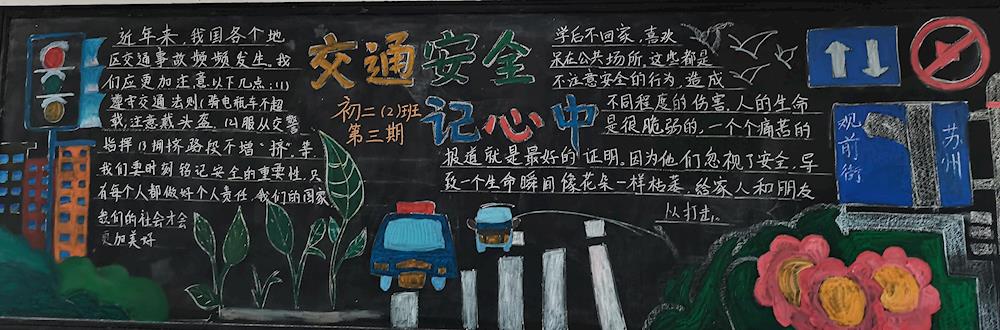 近年来,我国各个地
区交通事故频频发生。我
们应更加注意以下几点:(1)
遵守交通法则(骑电瓶车不超
载,注意戴头盔 (2)服从交警
指挥(3)拥挤路段不增“挤”等
我们要时刻铭记安全的重要性,只
有每个人都做好个人责任,我们的国家,
我们的社会才会
更加美好
交通安全
记心中
初二(2)班
第三期
学后不回家,喜欢
呆在公共场所,这些都是
不注意安全的行为,造成
不同程度的伤害,人的生命
是很脆弱的,一个个痛苦的
报道就是最好的证明。因为他们忽视了安全,导
致一个生命瞬间像花朵一样枯萎,给家人和朋友
以打击。
观前街
苏州